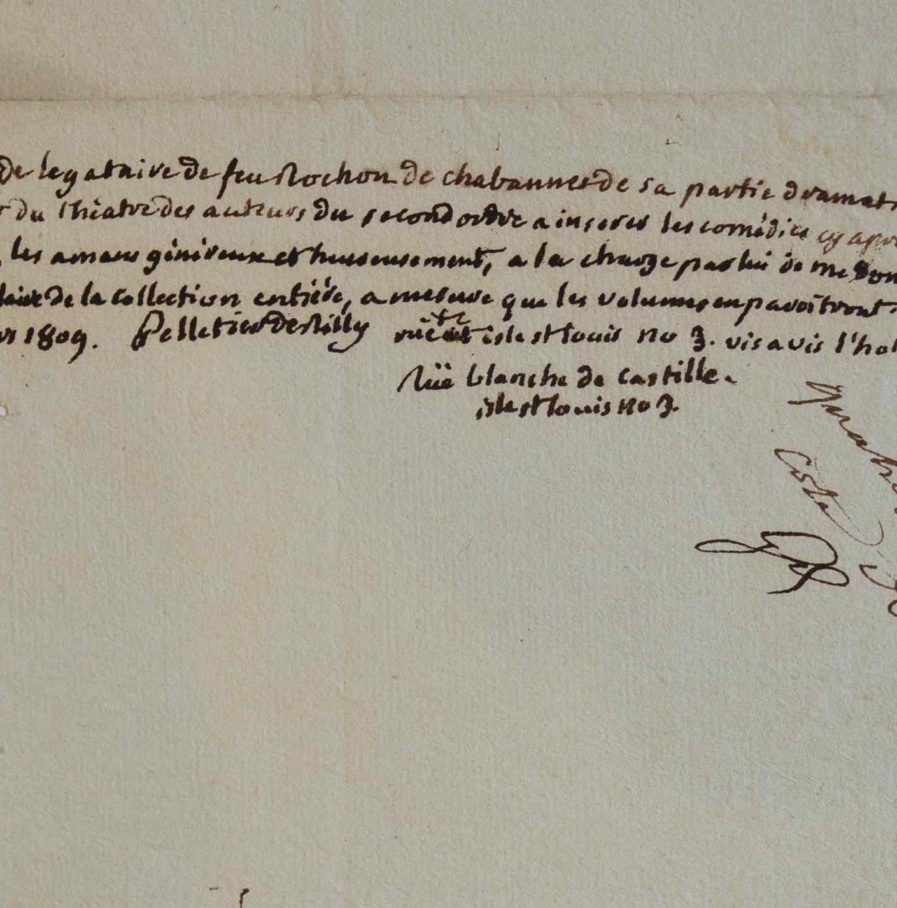 de legataire de feu Rochon de chabannes de sa partie dramat
du théatre des auteurs du second ordre a inserer les comédies cy apr
les amans généreux et heureusement, a la charge par lui de me don
laire de la collection entiére, a mesure que les volumes en paroitront
1809. Pelletier de Rilly isle st louis no 3. vis a vis l'hot
Rüe blanche de castille.
isle st louis no 3.